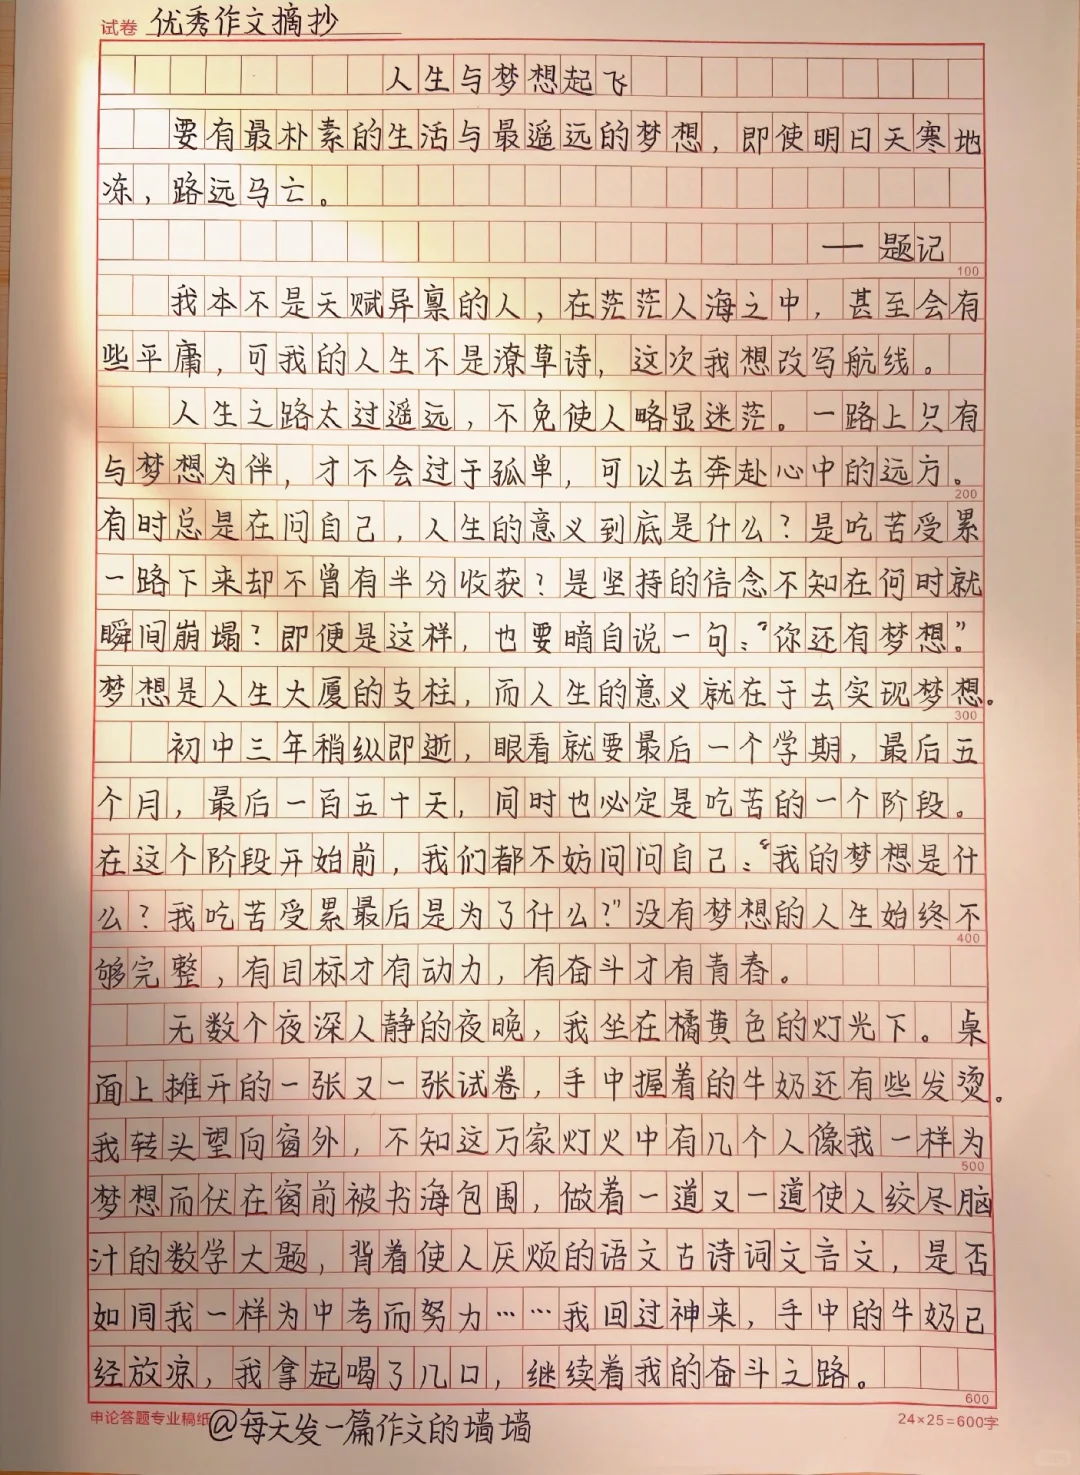 试卷 优秀作文摘抄
人生与梦想起飞
要有最朴素的生活与最遥远的梦想，即使明日天寒地
冻，路远马亡。
——题记
100
我本不是天赋异禀的人，在茫茫人海之中，甚至会有
些平庸，可我的人生不是潦草诗，这次我想改写航线。
人生之路太过遥远，不免使人略显迷茫。一路上只有
与梦想为伴，才不会过于孤单，可以去奔赴心中的远方。
200
有时总是在问自己，人生的意义到底是什么？是吃苦受累
一路下来却不曾有半分收获？是坚持的信念不知在何时就
瞬间崩塌？即便是这样，也要暗自说一句：“你还有梦想”。
梦想是人生大厦的支柱，而人生的意义就在于去实现梦想。
300
初中三年稍纵即逝，眼看就要最后一个学期，最后五
个月，最后一百五十天，同时也必定是吃苦的一个阶段。
在这个阶段开始前，我们都不妨问问自己：“我的梦想是什
么？我吃苦受累最后是为了什么？”没有梦想的人生始终不
400
够完整，有目标才有动力，有奋斗才有青春。
无数个夜深人静的夜晚，我坐在橘黄色的灯光下。桌
面上摊开的一张又一张试卷，手中握着的牛奶还有些发烫。
我转头望向窗外，不知这万家灯火中有几个人像我一样为
500
梦想而伏在窗前被书海包围，做着一道又一道使人绞尽脑
汁的数学大题，背着使人厌烦的语文古诗词文言文，是否
如同我一样为中考而努力……我回过神来，手中的牛奶已
经放凉，我拿起喝了几口，继续着我的奋斗之路。
600
申论答题专业稿纸 @每天发一篇作文的墙墙 24×25=600字